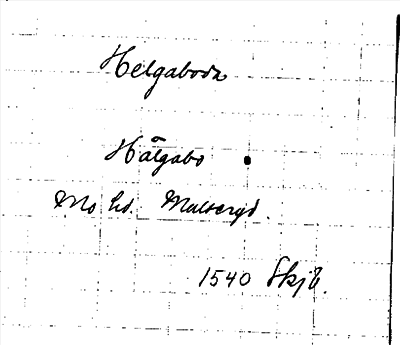 Helgaboda
Hälgabo
Mo hd. Malseryd.
1540 Skjb.